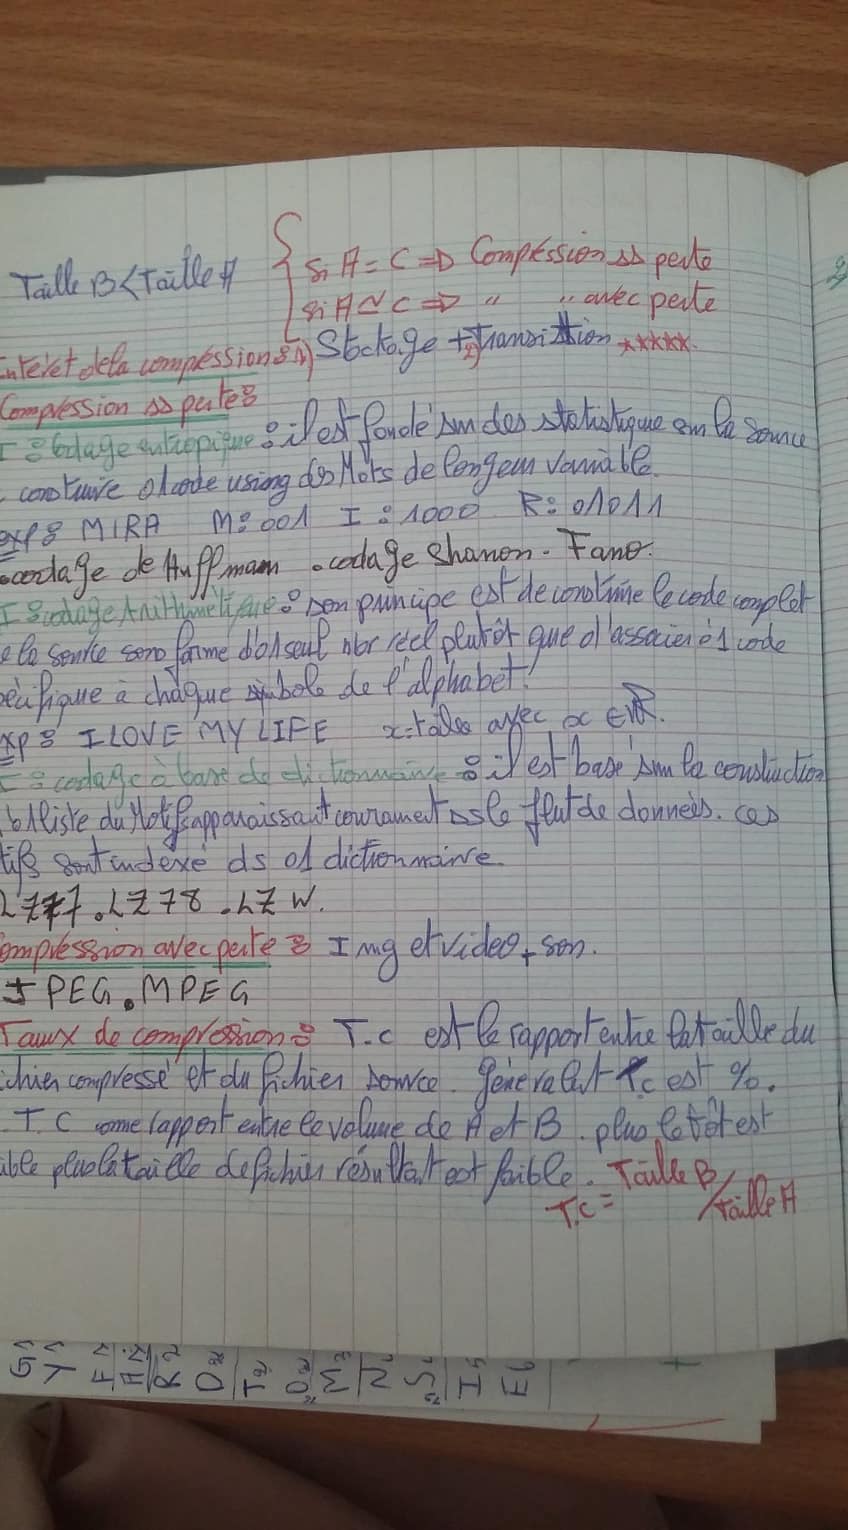 Taille B < Taille A { si A = C => Compréssion ss perte
si A ≃ C => " " avec perte
nteret de la compréssion : 1) Stockage + 2) transi tion *****
Compression ss perte :
I : Codage entropique : il est fondé sur des statistique sur la source
construire 01 code using des Mots de longeur variable.
exp : MIRA M : 001 I : 1000 R : 01011
.codage de Huffmam .codage Shanon - Fano.
I : codage Arithmétique : son principe est de construire le code complet
e la source sous forme d'01 seul nbr réel plutôt que d'associer à 1 code
pécifique à chaque symbole de l'alphabet.
xp : I LOVE MY LIFE x = avec x ∈ ℝ.
I : codage à base de dictionnaire : il est basé sur la construction
01 liste du Motifs apparaissant courament ds le flut de données. ces
tifs sont indexé ds 01 dictionnaire.
LZ77 . LZ78 . LZW.
ompression avec perte : Img et video + son.
JPEG . MPEG
Taux de compression : T.C est le rapport entre la taille du
ichier compressé et du fichier source. Généralmt T.C est %.
T.C come rapport entre le volume de A et B. plus le tôt est
ible plus la taille de fichier résultat est faible. T.C = Taille B / taille A